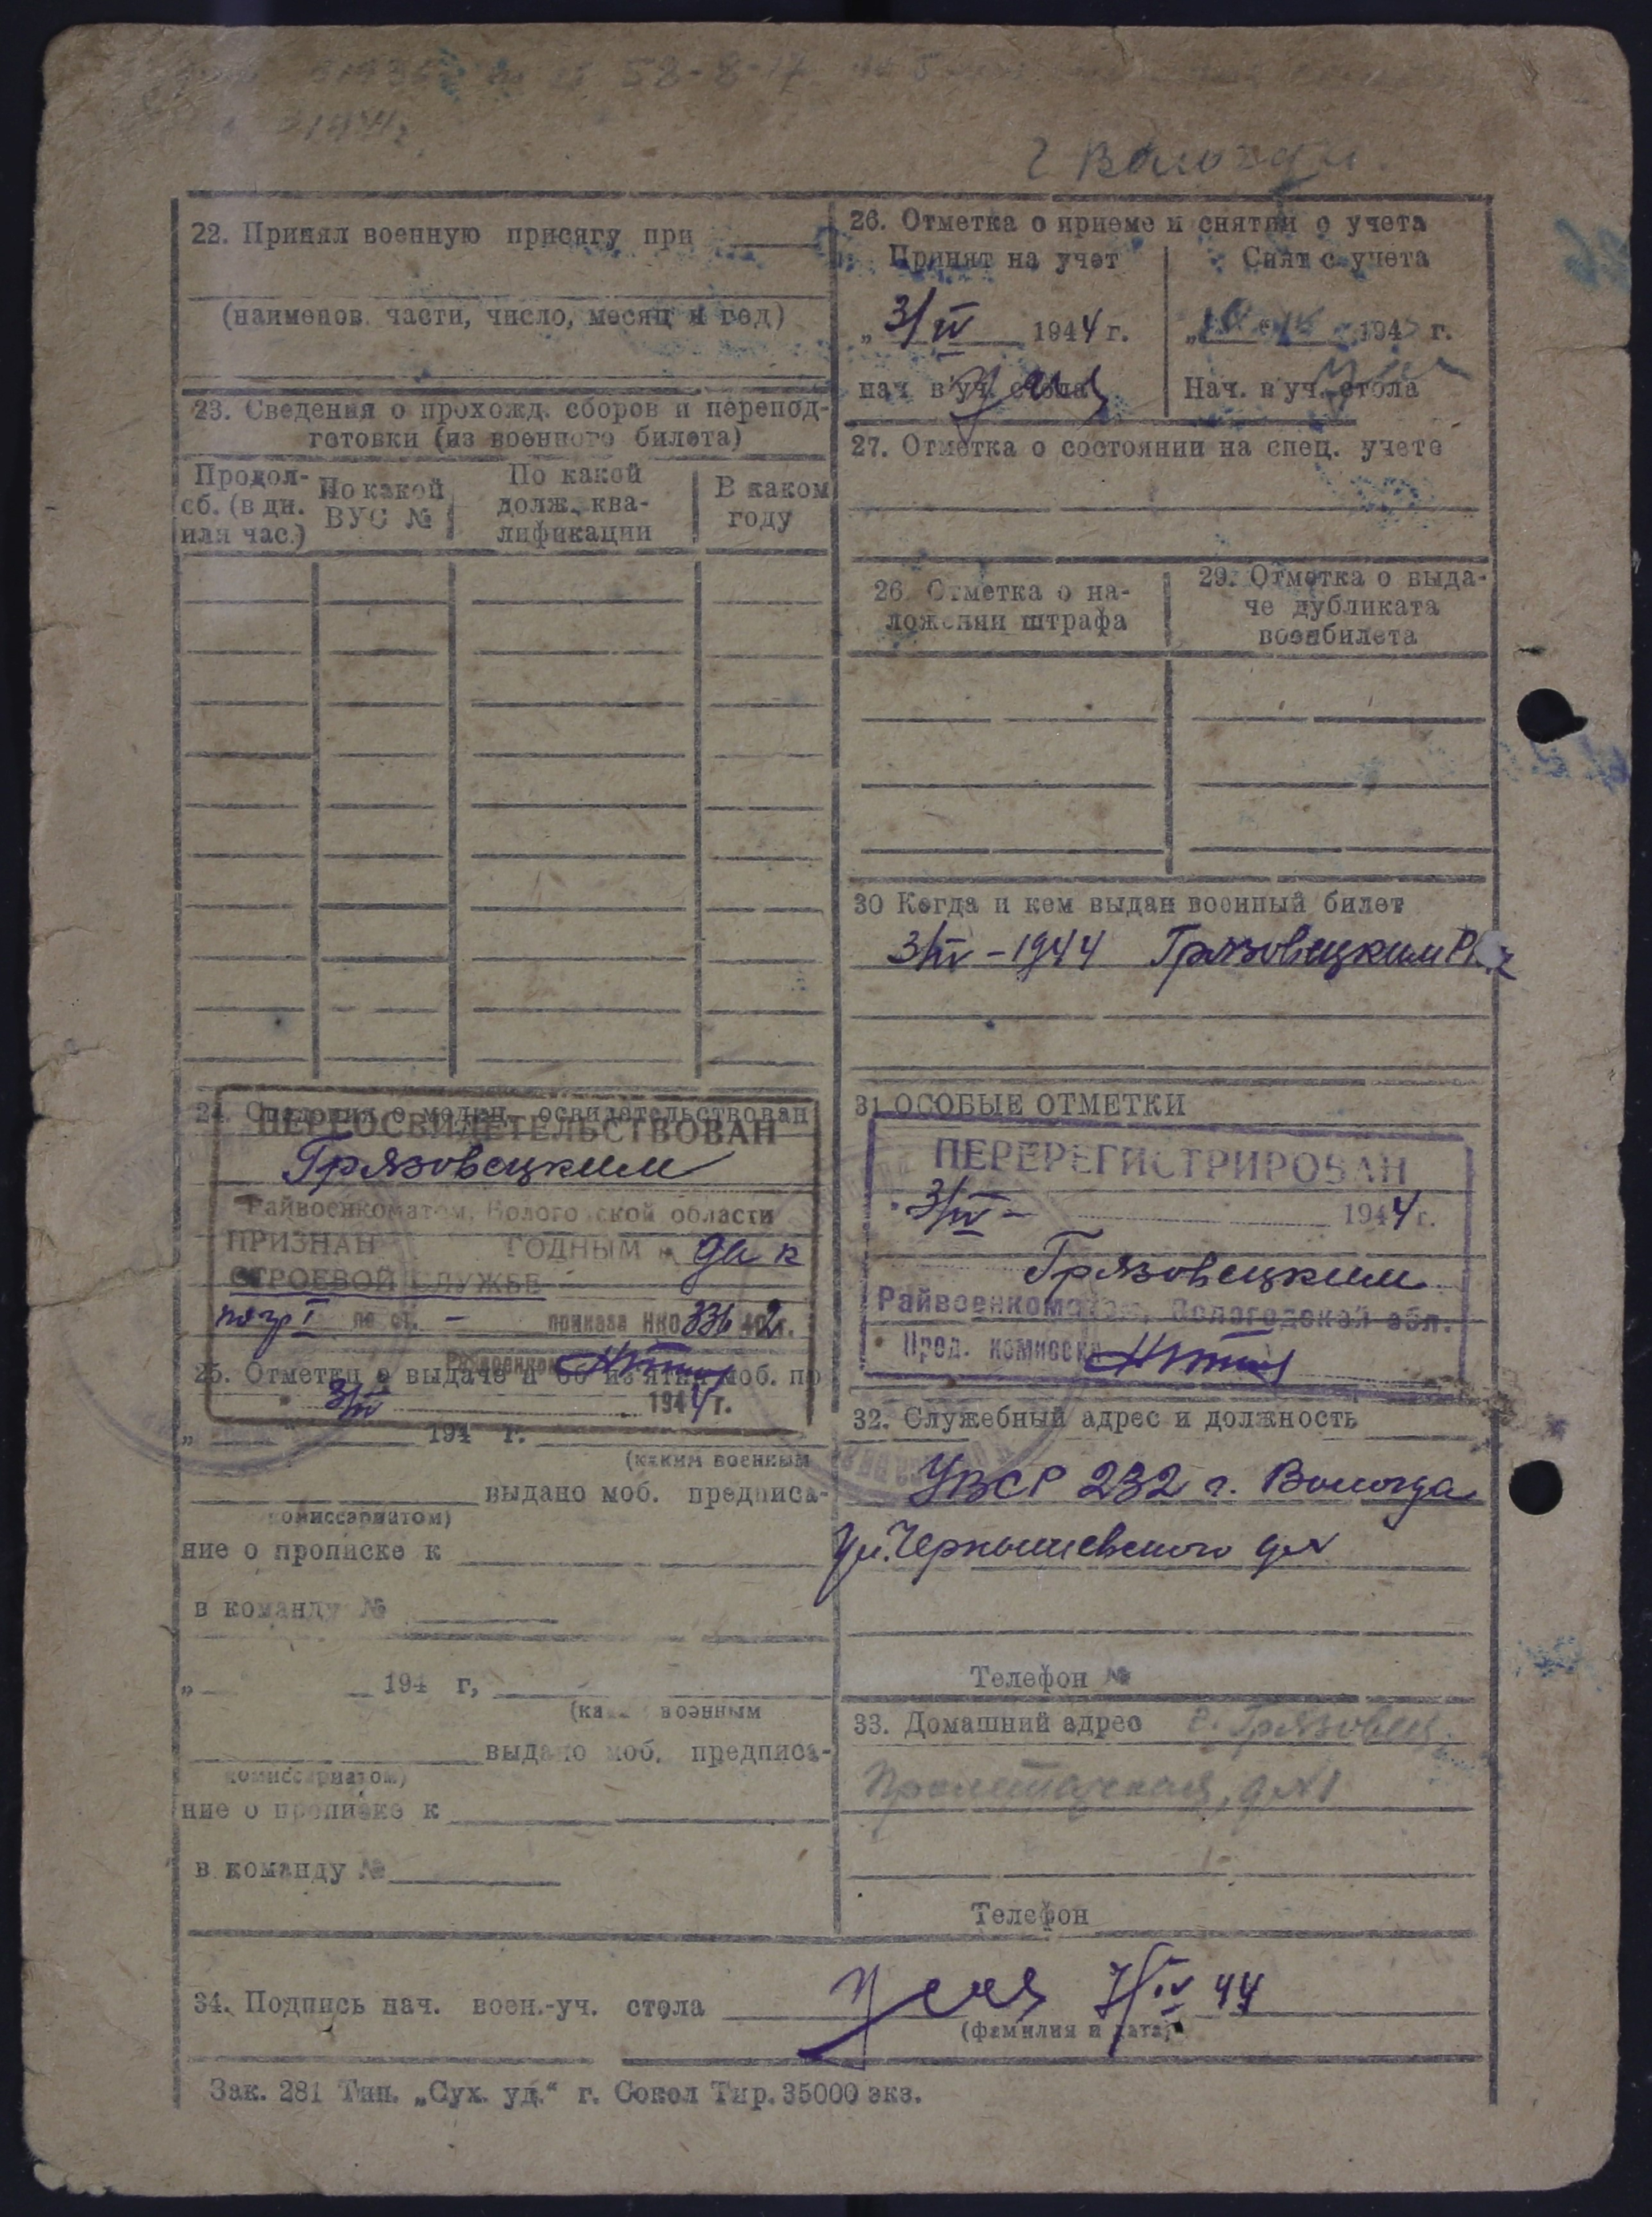 58-8-17
г. Вологда
22. Принял военную присягу при
(наименов. части, число, месяц и год)
23. Сведения о прохожд. сборов и перепод-
готовки (из военного билета)
Продол-
сб. (в дн.
или час.)
По какой
ВУС №
По какой
долж., ква-
лификации
В каком
году
24. Сведения о медиц. освидетельствован
ПЕРЕОСВИДЕТЕЛЬСТВОВАН
Грязовецким
Райвоенкоматом, Вологодской области
ПРИЗНАН ГОДНЫМ к
СТРОЕВОЙ СЛУЖБЕ
по гр I по ст. - приказа НКО 336 42 г.
Райвоенком
3/IV 1944 г.
25. Отметки о выдаче и об из'ятии моб. пр
„ " 194 г.
(каким военным
выдано моб. предписа-
комиссариатом)
ние о прописке к
в команду №
„ 194 г,
(каким военным
выдано моб. предписа-
комиссариатом)
ние о прописке к
в команду №
26. Отметка о приеме и снятии с учета
Принят на учет
„ 3/IV 1944 г.
нач. в'уч. стола
Снят с учета
194 г.
Нач. в'уч. стола
27. Отметка о состоянии на спец. учете
26. Отметка о на-
ложении штрафа
29. Отметка о выда-
че дубликата
военбилета
30 Когда и кем выдан военный билет
3/IV - 1944 Грязовецким
31 ОСОБЫЕ ОТМЕТКИ
ПЕРЕРЕГИСТРИРОВАН
3/IV - 1944 г.
Грязовецким
Райвоенкоматом, Вологодской обл.
Пред. комиссии
32. Служебный адрес и должность
УВСР 232 г. Вологда
Ул. Чернышевского д №
Телефон №
33. Домашний адрес г. Грязовец,
Пролетарская, д № 1
Телефон
34. Подпись нач. воен.-уч. стола 7/IV 44
(фамилия и дата)
Зак. 281 Тип. „Сух. уд.“ г. Сокол Тир. 35000 экз.